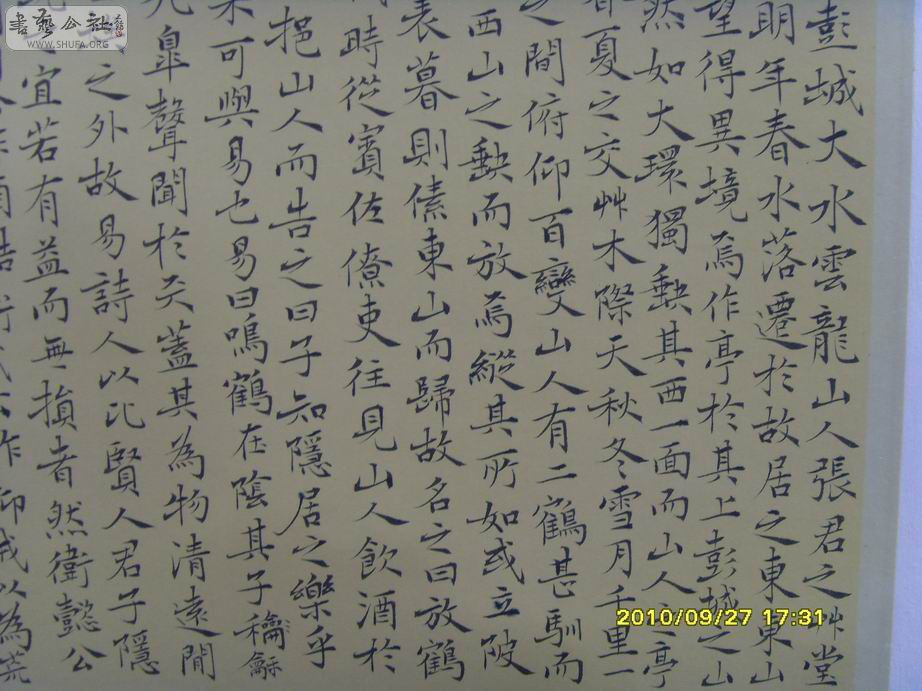 彭城大水雲龍山人張君之艸堂
明年春水落遷於故居之東東山
望得異境焉作亭於其上彭城之山
然如大環獨缺其西一面而山人之亭
春夏之交艸木際天秋冬雪月千里一
之間俯仰百變山人有二鶴甚馴而
西山之缺而放焉縱其所如或立陂
表暮則傃東山而歸故名之曰放鶴
時從賓佐僚吏往見山人飲酒於
挹山人而告之曰子知隱居之樂乎
未可與易也易曰鳴鶴在陰其子龢
九皐聲聞於天蓋其為物清遠閒
之外故易詩人以比賢人君子隱
宜若有益而無損者然衛懿公
作抑戒以為荒
書藝公社
WWW.SHUFA.ORG
2010/09/27 17:31